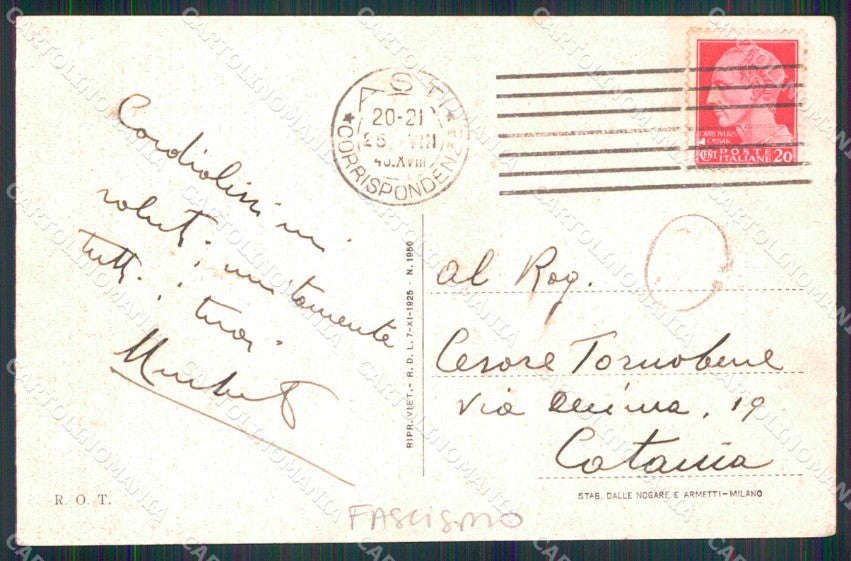 ASTI
20-21
26. VIII
40.XVIII
CORRISPONDENZE
POSTE
ITALIANE
CENT 20
Cordialissimi
saluti, unitamente
tutti i tuoi
Al Rag.
Cesare Tornabene
Via 19
Catania
RIPR. VIET. - R. D. L. 7-XI-1925 - N. 1950
R. O. T.
STAB. DALLE NOGARE E ARMETTI-MILANO
FASCISMO
CARTOLINOMANIA